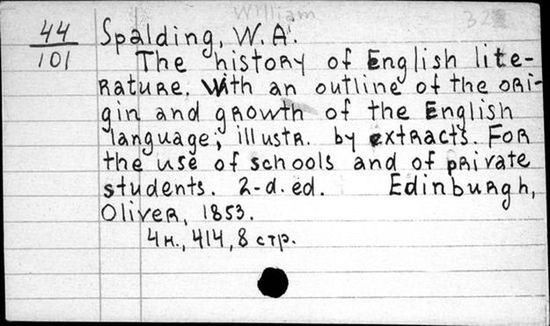 William 32
44 Spalding, W.A.
101 The history of English lite-
rature. With an outline of the ori-
gin and growth of the English
language; illustr. by extracts. For
the use of schools and of private
students. 2-d. ed. Edinburgh,
Oliver, 1853.
4н., 414, 8 стр.